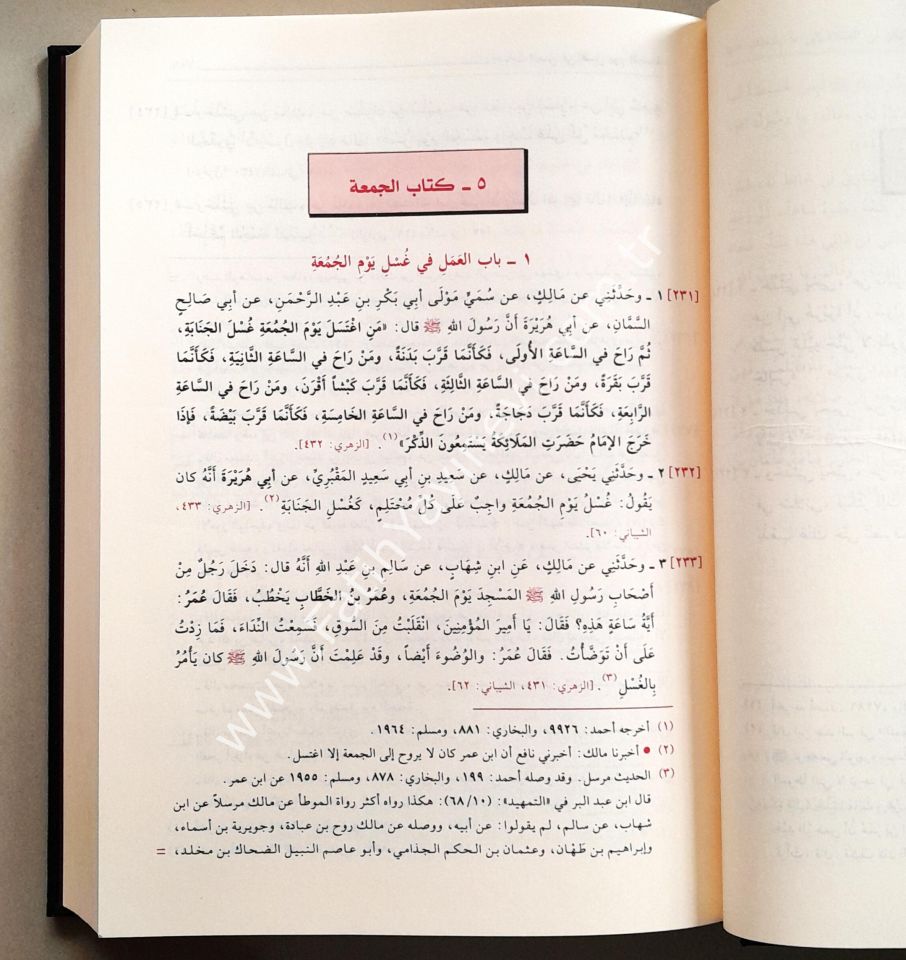 ٥ ـ كتاب الجمعة
١ ـ باب العَمَلِ في غُسْلِ يَوْمِ الجُمُعَةِ
[٢٣١] ١ ـ وحَدَّثَنِي عن مَالِكٍ، عن سُمَيٍّ مَوْلَى أبي بَكْرِ بنِ عَبْدِ الرَّحْمَنِ، عن أبي صَالِحٍ
السَّمَّانِ، عن أبي هُرَيْرَةَ أَنَّ رَسُولَ اللهِ ﷺ قال: «مَنِ اغْتَسَلَ يَوْمَ الجُمُعَةِ غُسْلَ الجَنَابَةِ،
ثُمَّ رَاحَ في السَّاعَةِ الأُولَى، فَكَأَنَّمَا قَرَّبَ بَدَنَةً، ومَنْ رَاحَ في السَّاعَةِ الثَّانِيَةِ، فَكَأَنَّمَا
قَرَّبَ بَقَرَةً، ومَنْ رَاحَ في السَّاعَةِ الثَّالِثَةِ، فَكَأَنَّمَا قَرَّبَ كَبْشاً أَقْرَنَ، ومَنْ رَاحَ في السَّاعَةِ
الرَّابِعَةِ، فَكَأَنَّمَا قَرَّبَ دَجَاجَةً، ومَنْ رَاحَ في السَّاعَةِ الخَامِسَةِ، فَكَأَنَّمَا قَرَّبَ بَيْضَةً، فَإِذَا
خَرَجَ الإِمَامُ حَضَرَتِ المَلَائِكَةُ يَسْتَمِعُونَ الذِّكْرَ»(١). [الزهري: ٤٣٢].
[٢٣٢] ٢ ـ وحَدَّثَنِي يَحْيَى، عن مَالِكٍ، عن سَعِيدِ بنِ أبي سَعِيدٍ المَقْبُرِيِّ، عن أبي هُرَيْرَةَ أَنَّهُ كان
يَقُولُ: غُسْلُ يَوْمِ الجُمُعَةِ واجِبٌ عَلَى كُلِّ مُحْتَلِمٍ، كَغُسْلِ الجَنَابَةِ(٢). [الزهري: ٤٣٣،
الشيباني: ٦٠].
[٢٣٣] ٣ ـ وحَدَّثَنِي عن مَالِكٍ، عَنِ ابنِ شِهَابٍ، عن سَالِمِ بنِ عَبْدِ اللهِ أَنَّهُ قال: دَخَلَ رَجُلٌ مِنْ
أَصْحَابِ رَسُولِ اللهِ ﷺ المَسْجِدَ يَوْمَ الجُمُعَةِ، وعُمَرُ بنُ الخَطَّابِ يَخْطُبُ، فَقَالَ عُمَرُ:
أَيَّةُ سَاعَةٍ هَذِهِ؟ فَقَالَ: يَا أَمِيرَ المُؤْمِنِينَ، انْقَلَبْتُ مِنَ السُّوقِ، فَسَمِعْتُ النِّدَاءَ، فَمَا زِدْتُ
عَلَى أَنْ تَوَضَّأْتُ. فَقَالَ عُمَرُ: والوُضُوءَ أَيْضاً، وقَدْ عَلِمْتَ أَنَّ رَسُولَ اللهِ ﷺ كان يَأْمُرُ
بِالغُسْلِ(٣). [الزهري: ٤٣١، الشيباني: ٦٢].
(١) أخرجه أحمد: ٩٩٢٦، والبخاري: ٨٨١، ومسلم: ١٩٦٤.
(٢) • أخبرنا مالك: أخبرني نافع أن ابن عمر كان لا يروح إلى الجمعة إلا اغتسل.
(٣) الحديث مرسل. وقد وصله أحمد: ١٩٩، والبخاري: ٨٧٨، ومسلم: ١٩٥٥ عن ابن عمر.
قال ابن عبد البر في «التمهيد»: (٦٨/١٠): هكذا رواه أكثر رواة الموطأ عن مالك مرسلاً عن ابن
شهاب، عن سالم، لم يقولوا: عن أبيه، ووصله عن مالك روح بن عبادة، وجويرية بن أسماء،
وإبراهيم بن طَهْمان، وعثمان بن الحكم الجذامي، وأبو عاصم النبيل الضحاك بن مخلد، =